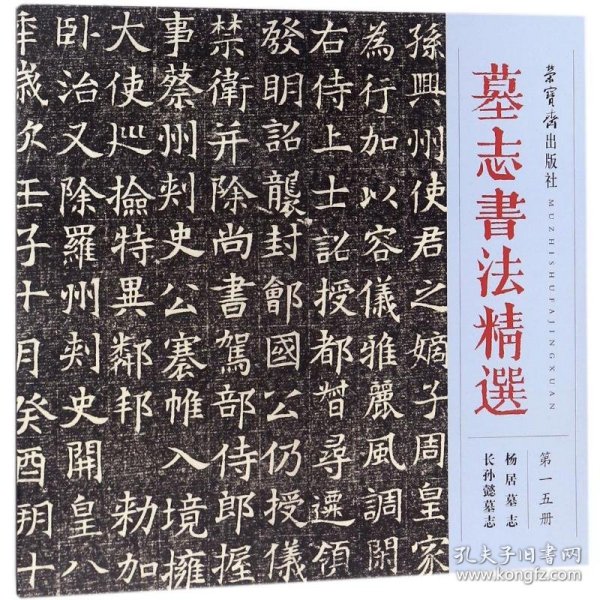 孫興州使君之嫡子周皇家
為行加以容儀雅麗風調閑
右侍上士詔授都督尋遷領
發明詔襲封鄫國公仍授儀
禁衛并除尚書駕部侍郎握
事蔡州刺史公褰帷入境擁
大使巡撿特異鄰邦 勑加
卧治又除羅州刺史開皇八
年歲次壬子十月癸酉朔十
荣寶齋出版社
墓志書法精選
MUZHISHUFAJINGXUAN
第一五册
杨居墓志
长孙懿墓志
孔夫子旧书网
www.kongfz.com